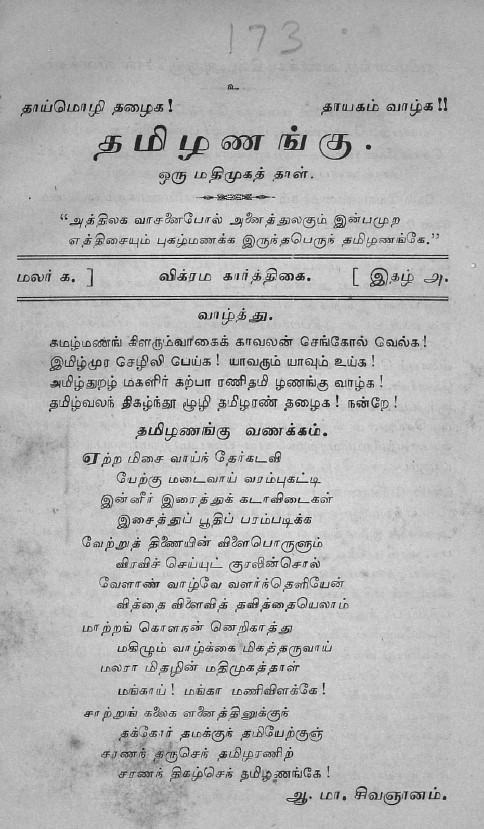 173
உ
தாய்மொழி தழைக! தாயகம் வாழ்க!!
தமிழணங்கு.
ஒரு மதிமுகத் தாள்.
“அத்திலக வாசனைபோல் அனைத்துலகும் இன்பமுற
எத்திசையும் புகழ்மணக்க இருந்தபெருந் தமிழணங்கே.”
மலர் க. ] விக்ரம கார்த்திகை. [ இதழ் அ.
வாழ்த்து.
கமழ்மணங் கிளரும்வாகைக் காவலன் செங்கோல் வெல்க!
இமிழ்முர செழிலி பெய்க! யாவரும் யாவும் உய்க!
அமிழ்துறழ் மகளிர் கற்பா ரணிதமி ழணங்கு வாழ்க!
தமிழ்வலந் திகழ்ந்தூ ழூழி தமிழரண் தழைக! நன்றே!
தமிழணங்கு வணக்கம்.
ஏற்ற மிசை வாய்ந் தேர்கடவி
யேற்கு மடைவாய் வரம்புகட்டி
இன்னீர் இரைத்துக் கடாவிடைகள்
இசைத்துப் பூதிப் பரம்படிக்க
வேற்றுத் திணையின் விளைபொருளும்
விரவிச் செய்யுட் குரலின்சொல்
வேளாண் வாழ்வே வளர்ந்தெளியேன்
வித்தை விளைவித் தவித்தையெலாம்
மாற்றங் கொளநன் னெறிகாத்து
மகிழும் வாழ்க்கை மிகத்தருவாய்
மலரா மிதழின் மதிமுகத்தாள்
மங்காய்! மங்கா மணிவிளக்கே!
சாற்றுங் கலைக ளனைத்தினுக்குந்
தக்கோர் தமக்குந் தமியேற்குஞ்
சரணந் தருசெந் தமிழரணிற்
சரணந் திகழ்செந் தமிழணங்கே!
ஆ. மா. சிவஞானம்.